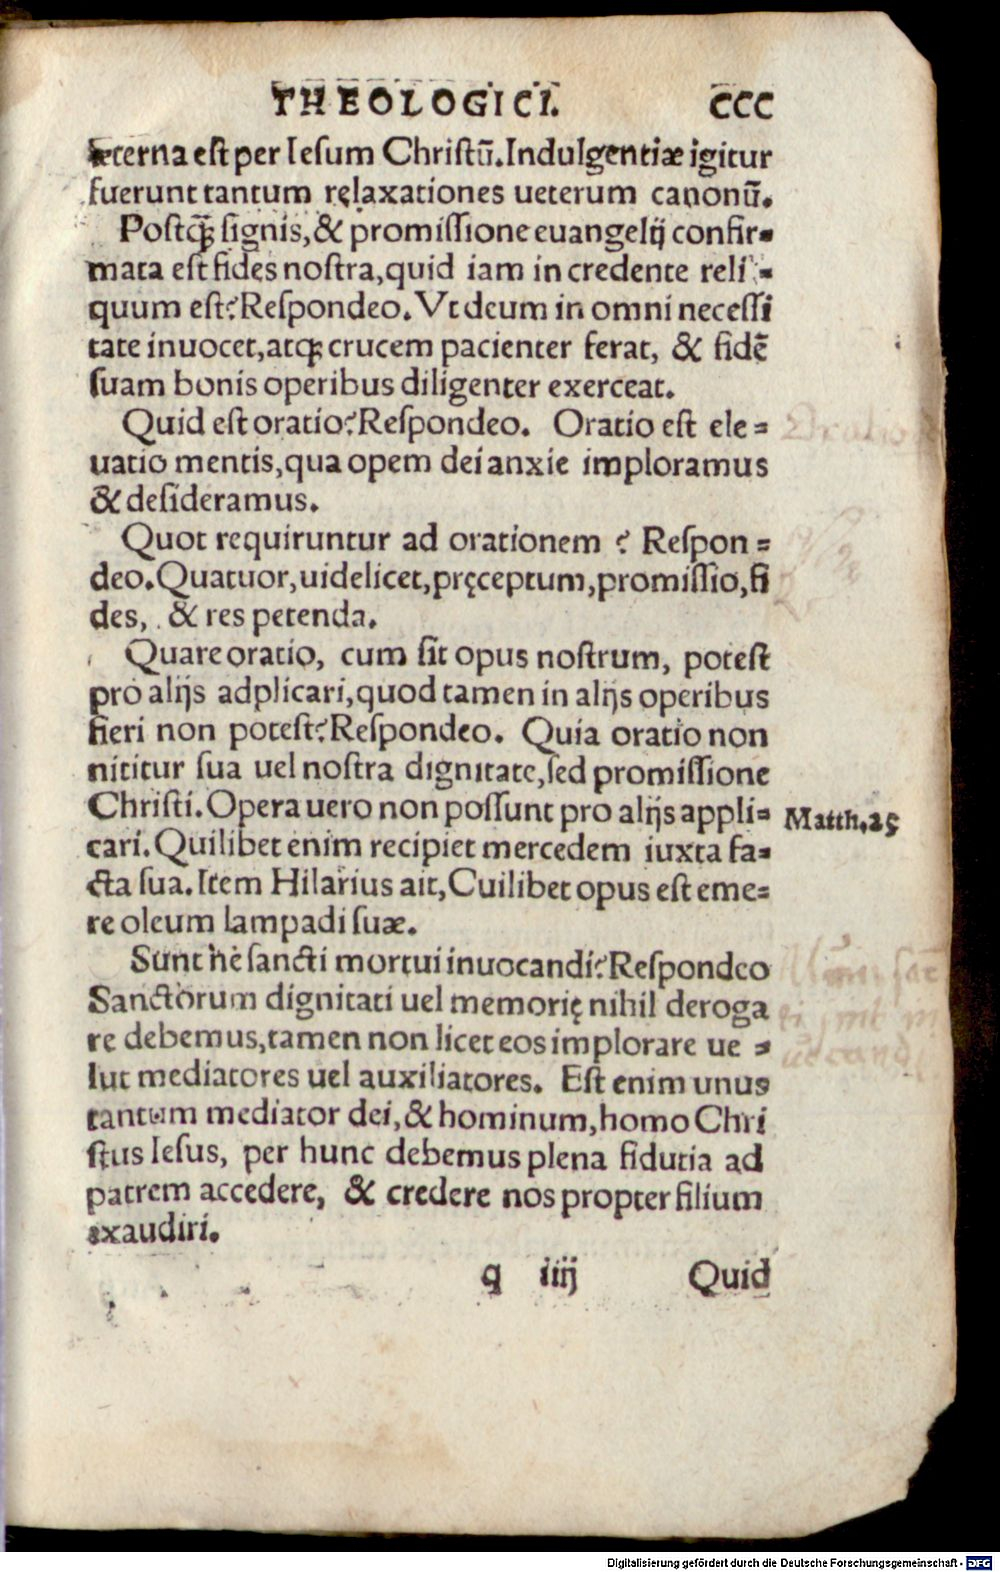 THEOLOGICI. CCC
æterna est per Iesum Christū. Indulgentiæ igitur
fuerunt tantum relaxationes ueterum canonū.
Postq̃ꝫ signis, & promissione euangelij confir-
mata est fides nostra, quid iam in credente reli-
quum est? Respondeo. Vt deum in omni necessi
tate inuocet, atqꝫ crucem pacienter ferat, & fidē
suam bonis operibus diligenter exerceat.
Quid est oratio? Respondeo. Oratio est ele=
uatio mentis, qua opem dei anxie imploramus
& desideramus.
Quot requiruntur ad orationem ? Respon=
deo. Quatuor, uidelicet, pręceptum, promissio, fi
des, & res petenda.
Quare oratio, cum sit opus nostrum, potest
pro alijs adplicari, quod tamen in alijs operibus
fieri non potest? Respondeo. Quia oratio non
nititur sua uel nostra dignitate, sed promissione
Christi. Opera uero non possunt pro alijs appli=
Matth. 25
cari. Quilibet enim recipiet mercedem iuxta fa=
cta sua. Item Hilarius ait, Cuilibet opus est eme=
re oleum lampadi suæ.
Sunt nè sancti mortui inuocandi? Respondeo
Sanctorum dignitati uel memorię nihil deroga
re debemus, tamen non licet eos implorare ue =
lut mediatores uel auxiliatores. Est enim unus
tantum mediator dei, & hominum, homo Chri
stus Iesus, per hunc debemus plena fidutia ad
patrem accedere, & credere nos propter filium
exaudiri.
q iiij Quid
Oratio
Digitalisierung gefördert durch die Deutsche Forschungsgemeinschaft - DFG